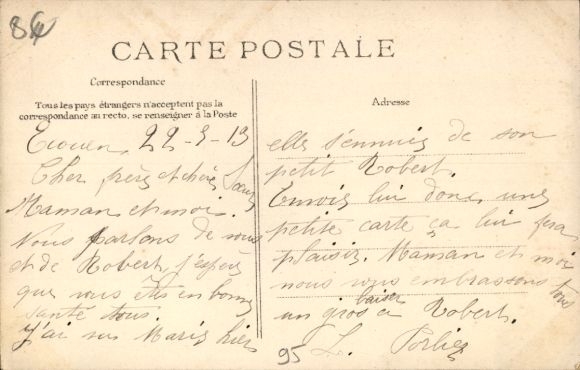 86
CARTE POSTALE
Correspondance
Tous les pays étrangers n'acceptent pas la
correspondance au recto, se renseigner à la Poste
Ecouen, 22-5-13
Cher frère et chère Sœur
Maman et moi.
Nous parlons de vous
et de Robert, j'espère
que vous êtes en bonne
santé tous.
J'ai vu Marie hier
Adresse
elle s'ennuie de son
petit Robert.
Envoie lui donc une
petite carte ça lui fera
plaisir. Maman et moi
nous vous embrassons tous
un gros baiser à Robert.
L.
95